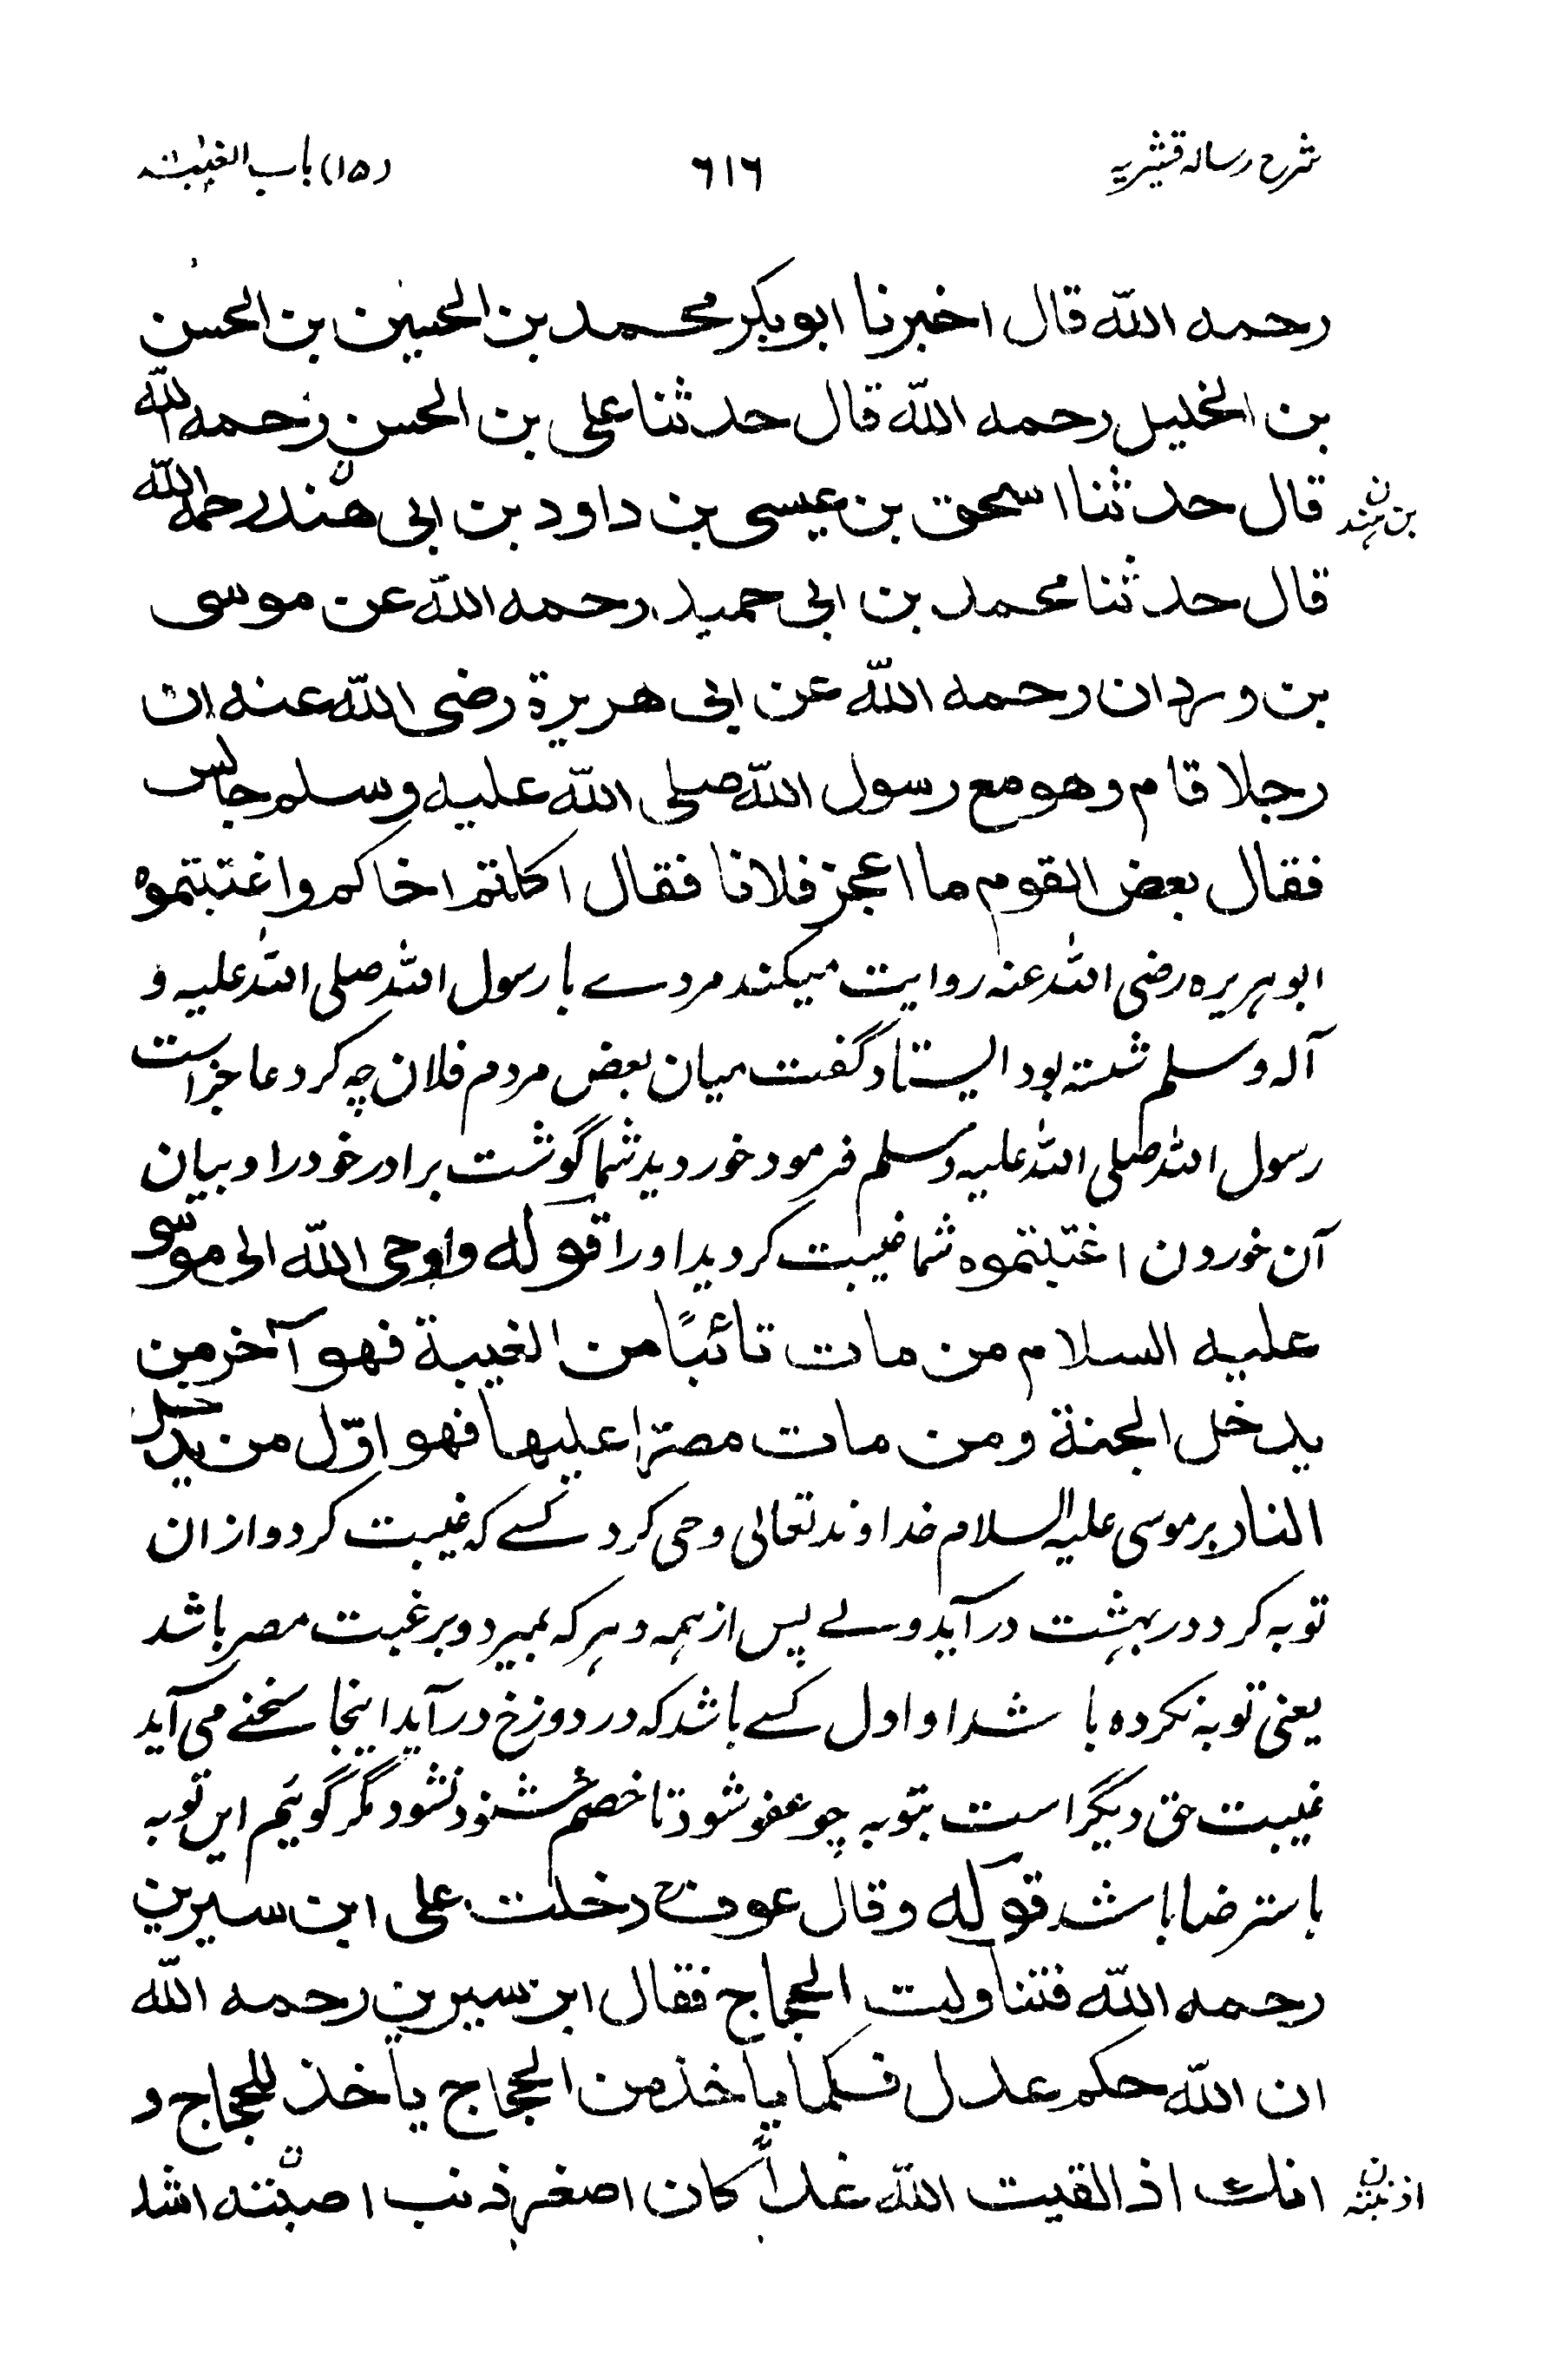 شرح رساله قشیریه ٦١٦ (١۵) باب الغیبته
رحمه الله قال اخبرنا ابوبکر محمد بن الحسین بن الحسن
بن الخلیل رحمه الله قال حدثنا علی بن الحسن رحمه الله
قال حدثنا اسحق بن عیسی بن داود بن ابی هند رحمه الله
بن هند
قال حدثنا محمد بن ابی حمید رحمه الله عن موسی
بن وردان رحمه الله عن ابی هریرة رضی الله عنه ان
رجلا قام وهو مع رسول الله صلی الله علیه وسلم جالس
فقال بعض القوم ما اعجز فلانا فقال اکلتم اخاکم واغتبتموه
ابوہریره رضی الله عنه روایت میکند مردے با رسول الله صلی الله علیه و
آله وسلم نشسته بود ایستاد گفت میان بعض مردم فلان چه کرد عاجز است
رسول الله صلی الله علیه وسلم فرمود خوردید شما گوشت برادر خود را و بیان
آن خوردن اغتبتموه شما غیبت کردید اورا قوله واوحی الله الی موسی
علیه السلام من مات تائبًا من الغیبة فهو آخر من
یدخل الجنة ومن مات مصرّا علیها فهو اوّل من یدخل
النار بر موسی علیه السلام خداوند تعالی وحی کرد کسے که غیبت کرد و از ان
توبه کرد در بہشت درآید ولے پس از ہمه و ہر که بمیرد و بر غبت مصر باشد
یعنی توبه نکرده باشد او اول کسے باشد که در دوزخ درآید اینجا سخنے می آید
غیبت حق دیگر است بتوبه چو عفو شود تا خصم خشنود نشود مگر گوئیم این توبه
باسترضا باشد قوله وقال عوف دخلت علی ابن سیرین
رحمه الله فتناولت الحجاج فقال ابن سیرین رحمه الله
ان الله حکم عدل فکما یاخذ من الحجاج یاخذ للحجاج و
انک اذا لقیت الله غداً کان اصغر ذنب اصبته اشد
اذنبته